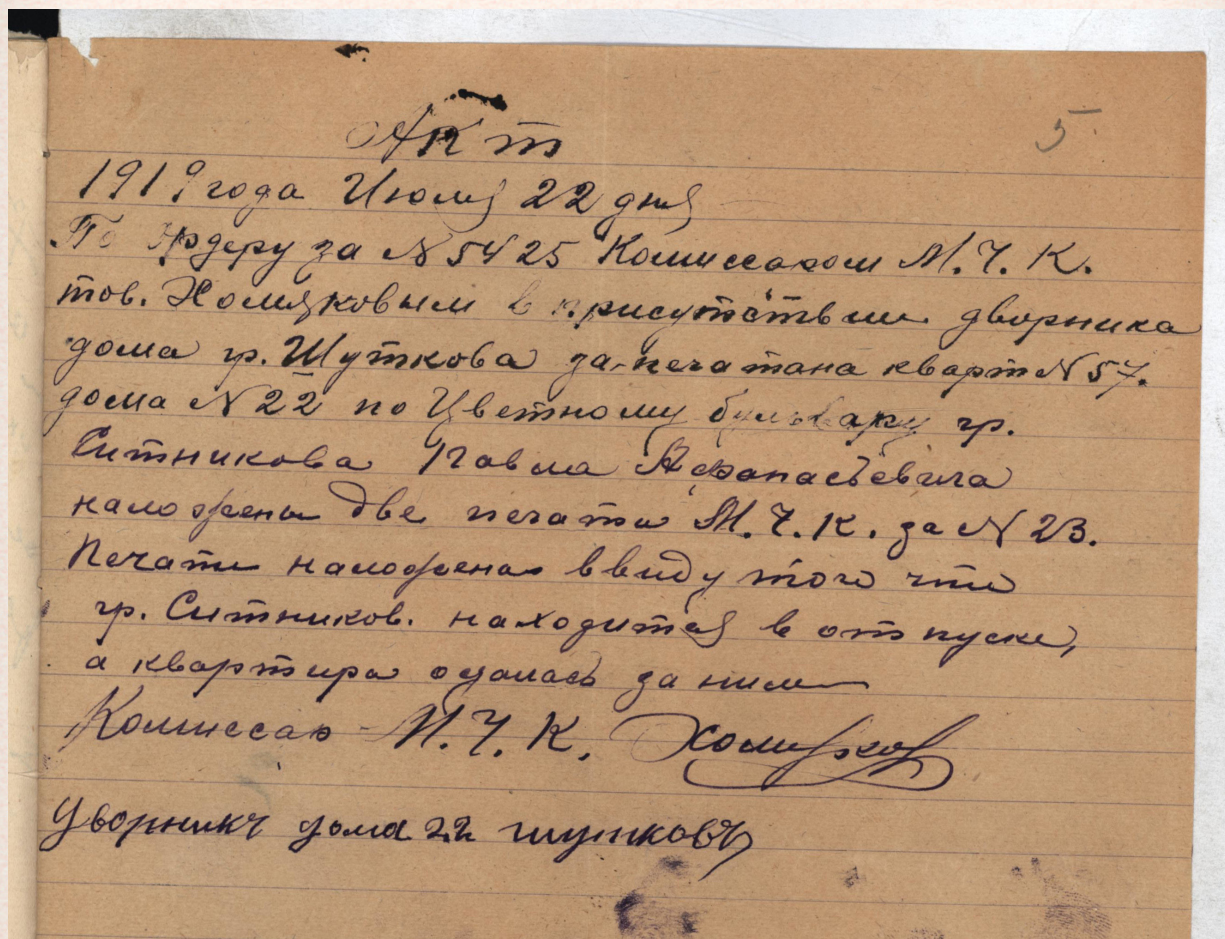 5.
Акт
1919 года Июля 22 дня
По Ордеру за N 5425 Комиссаром М.Ч.К.
тов. Хомяковым в присутствии дворника
дома гр. Шуткова за-печатана кварт N 57.
дома N 22 по Цветному бульвару гр.
Ситникова Павла Афанасьевича
наложены две печати М.Ч.К. за N 23.
Печати наложена ввиду того что
гр. Ситников. находится в отпуске,
а квартира за ним
Комиссар М.Ч.К. Хомяков
Дворникъ дома 22 шутковъ